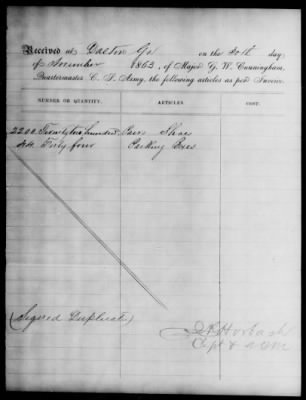 Received at Dalton Ga on the 30th day
of November 1863, of Major G. W. Cunningham,
Quartermaster C. S. Army, the following articles as per Invoice.
NUMBER OR QUANTITY. ARTICLES. COST.
2200 Twenty two hundred Pairs Shoes
44 Forty four Packing Boxes
(Signed Duplicate)
Capt & AQM